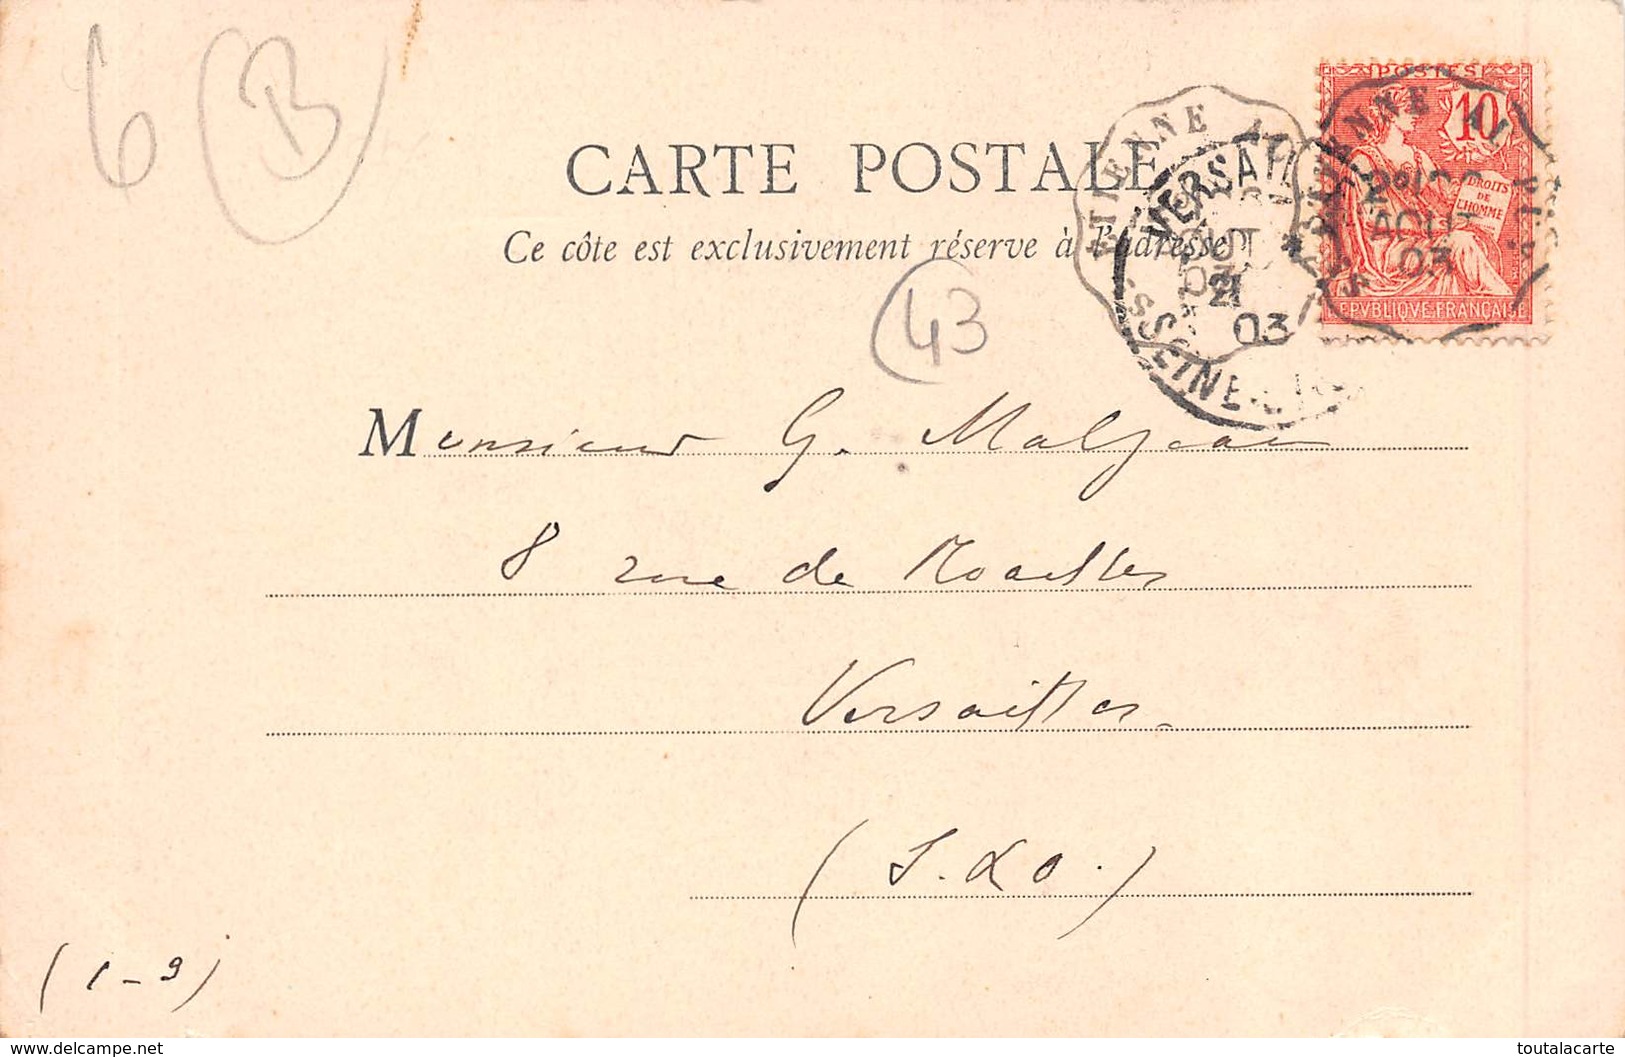 6
B
CARTE POSTALE
Ce côte est exclusivement réservé à l'adresse
43
POSTES
10
DROITS
DE
L'HOMME
AOUT
03
REPVBLIQVE FRANÇAISE
VERSAIL
21
03
Monsieur G. Maljean
8 rue de Noailles
Versailles
(S. & O.)
(1-9)
delcampe.net
toutalacarte